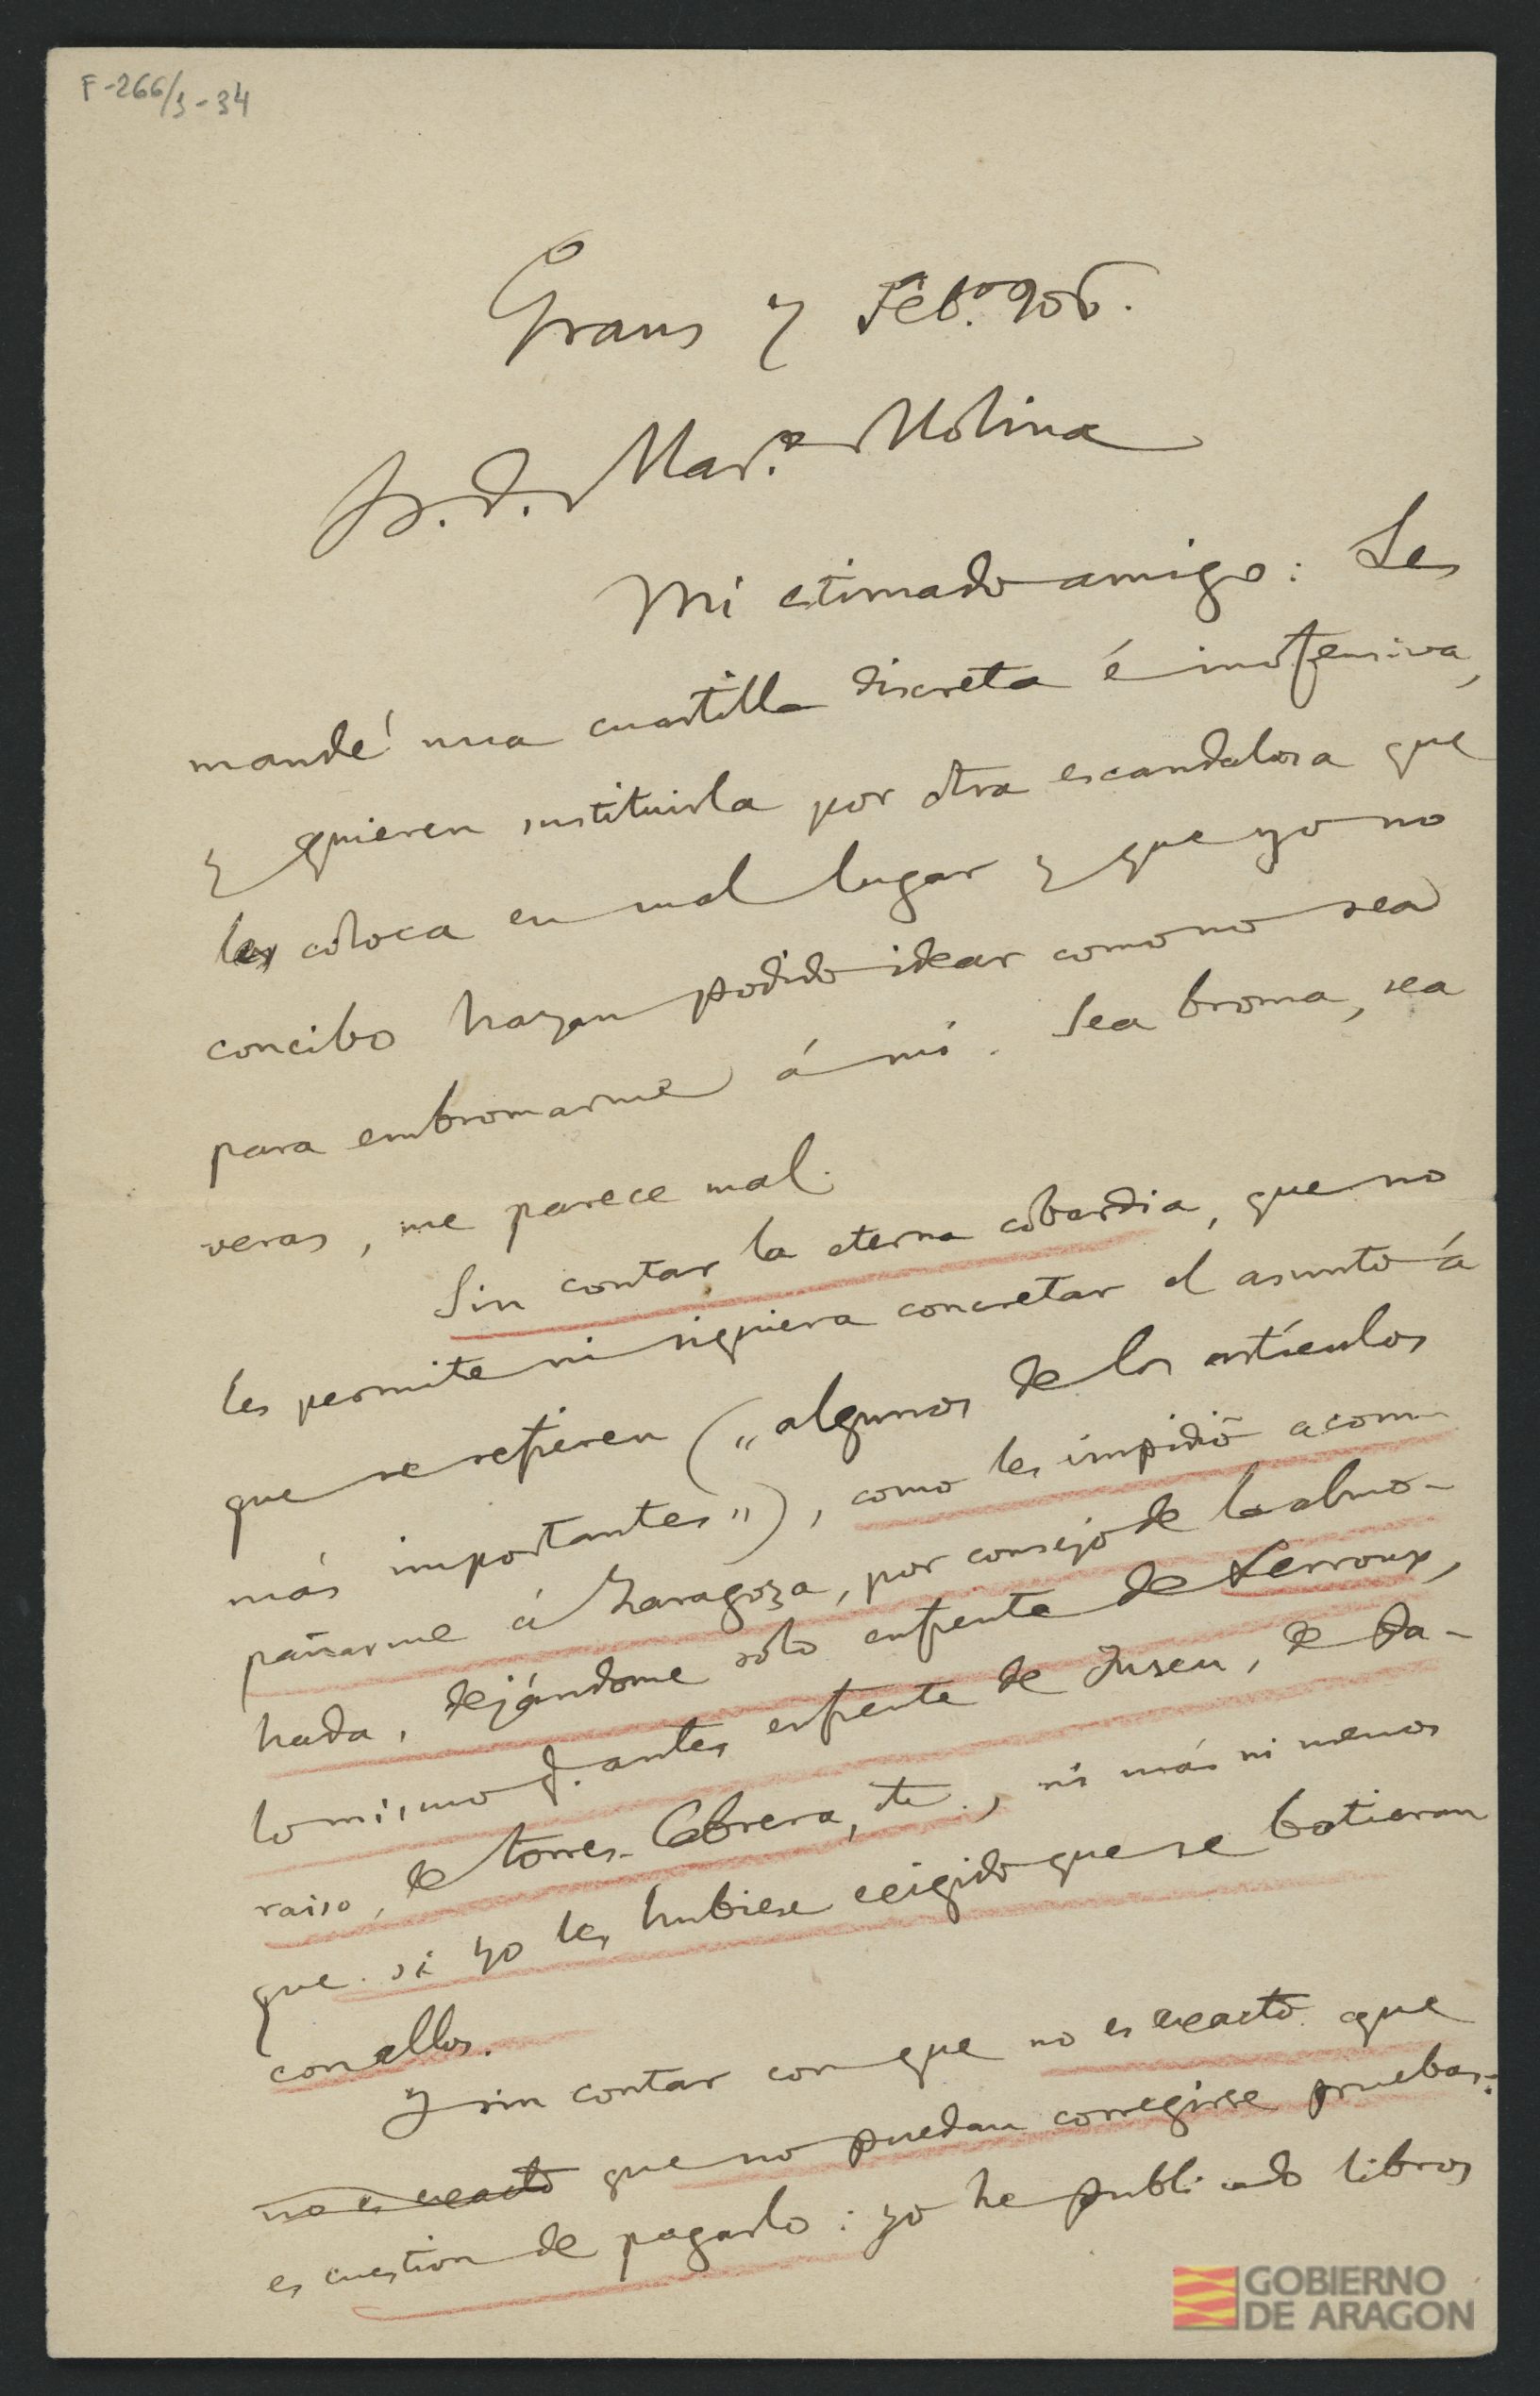 F-266/3-34
Graus 7 Feb.º 906.
S. D. Mar.º Molina
Mi estimado amigo: Les
mandé una cuartilla discreta é inofensiva,
y quieren sustituirla por otra escandalosa que
les coloca en mal lugar y que yo no
concibo hayan podido idear como no sea
para embromarme á mí. Sea broma, sea
veras, me parece mal.
Sin contar la eterna cobardia, que no
les permite ni siquiera concretar el asunto á
que se refieren ("algunos de los artículos
más importantes"), como les impidió acom-
pañarme á Zaragoza, por consejo de la almo-
hada, dejándome solo enfrente de Lerroux,
lo mismo q. antes enfrente de Juseu, de Pa-
raiso, de Torres-Cabrera, etc., ni más ni menos
que si yo les hubiese exigido que se batieran
con ellos.
Y sin contar con que no es exacto que
no es exacto que no puedan corregirse pruebas:
es cuestion de pagarlo: yo he publicado libros
GOBIERNO
DE ARAGON